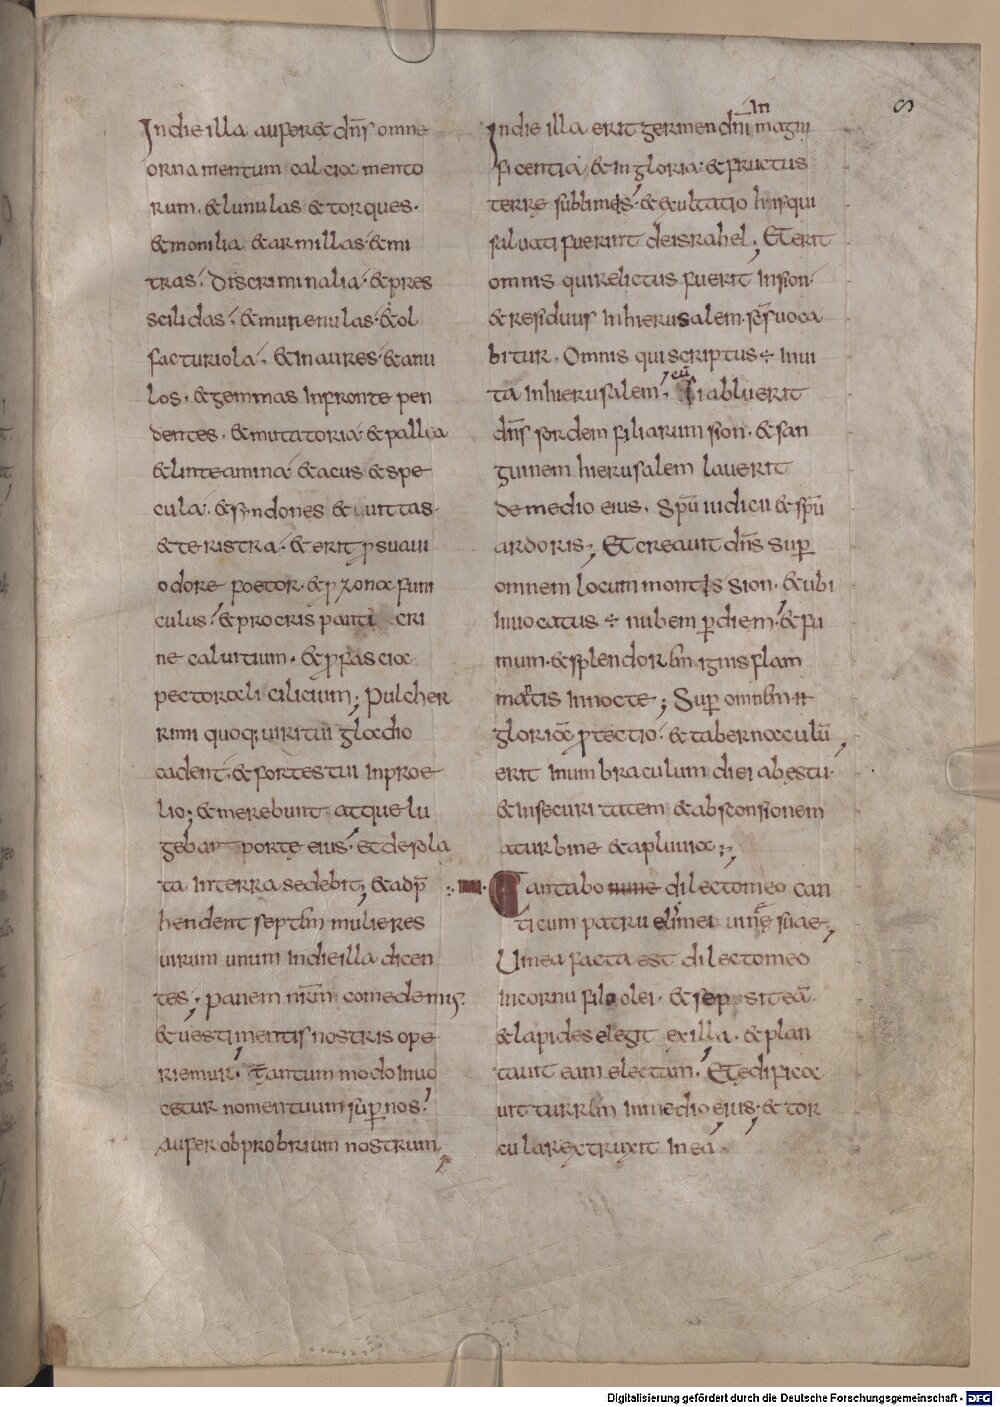 8
In die illa auferet dn̄s omne
ornamentum calciamento
rum. & lunulas & torques.
& monilia & armillas & mi
tras. Discriminalia. & pres
scilidas. & murenulas. & ol
facturiola. & inaures. & anu
los. & gemmas in fronte pen
dentes. & mutatoria. & pallia
& linteamina. & acus & spe
cula. & sindones & uittas.
& teristra. & erit ꝑ suaui
odore foetor. & ꝑ zona funi
culus. & pro crispanti cri
ne caluitium. & ꝑ fascia
pectorali cilicium; Pulcher
rimi quoq; uiri tui gladio
cadent. & fortes tui in proe
lio; & merebunt atque lu
gebant portę eius. et desola
ta in terra sedebit; & adp̄
hendent septē mulieres
uirum unum in die illa dicen
tes; panem nr̄m comedemus.
& uestimentis nostris ope
riemur. Tantum modo inuo
cetur nomen tuum suꝑ nos.
Aufer obprobrium nostrum;
In die illa erit germen dn̄i In magni
ficentia. & in gloria. & fructus
terrę sublimis. & exultatio his qui
saluati fuerint de israhel; Et erit
omnis qui relictus fuerit in sion.
& residuus in hierusalem. sc̄s uoca
bitur. Omnis qui scriptus ÷ in ui
ta in hierusalem. cū Si abluerit
dn̄s sordem filiarum sion. & san
guinem hierusalem lauerit
de medio eius. Spū iudicii & spū
ardoris; Et creauit dn̄s suꝑ
omnem locum montis sion. & ubi
inuocatus ÷ nubem ꝑ diem. & fu
mum. & splendorem ignis flam
mantis in nocte; Suꝑ omnem n
gloriā ꝓtectio. & tabernaculū
erit in umbraculum diei ab ęstu.
& in securitatem & absconsionem
a turbine & a pluuia;
.IIII. Cantabo nunc dilecto meo can
ticum patruelis mei uineę suae;
Uinea facta est dilecto meo
in cornu filo olei. & sepsit eā.
& lapides elegit ex illa. & plan
tauit eam electam. Et ędifica
uit turrem in medio eius. & tor
cular extruxit in eā.
Digitalisierung gefördert durch die Deutsche Forschungsgemeinschaft - DFG